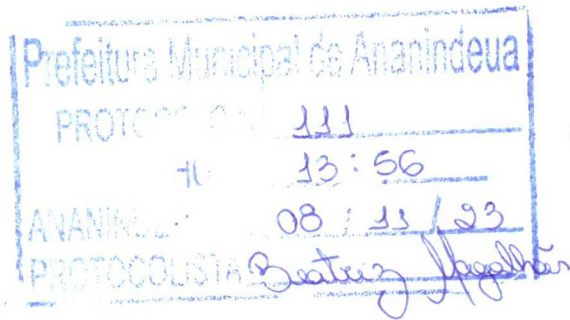 Prefeitura Municipal de Ananindeua
111
13:56
08 / 11 / 23
PROTOCOLISTA Beatriz Magalhães